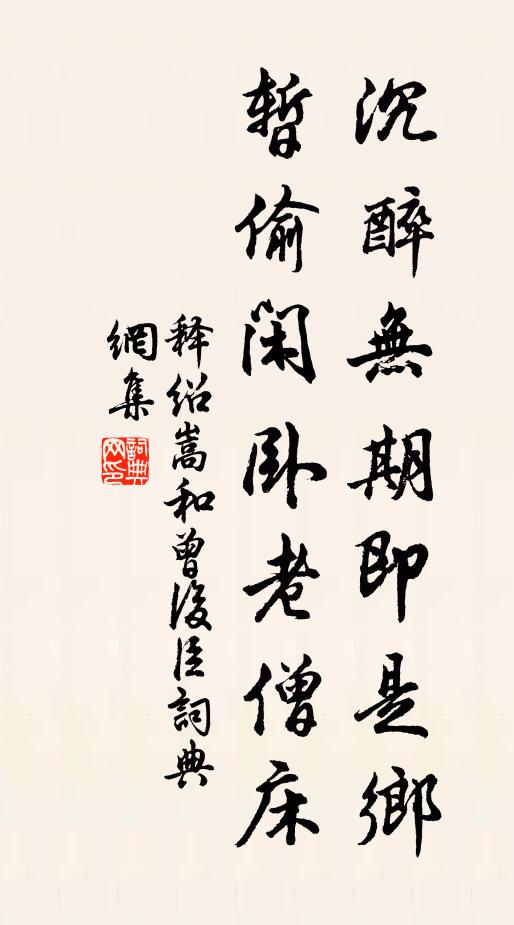 沉醉無期即是鄉
暫偷閑卧老僧床
释紹嵩和曾浚臣詞典
網集
詞典
网印